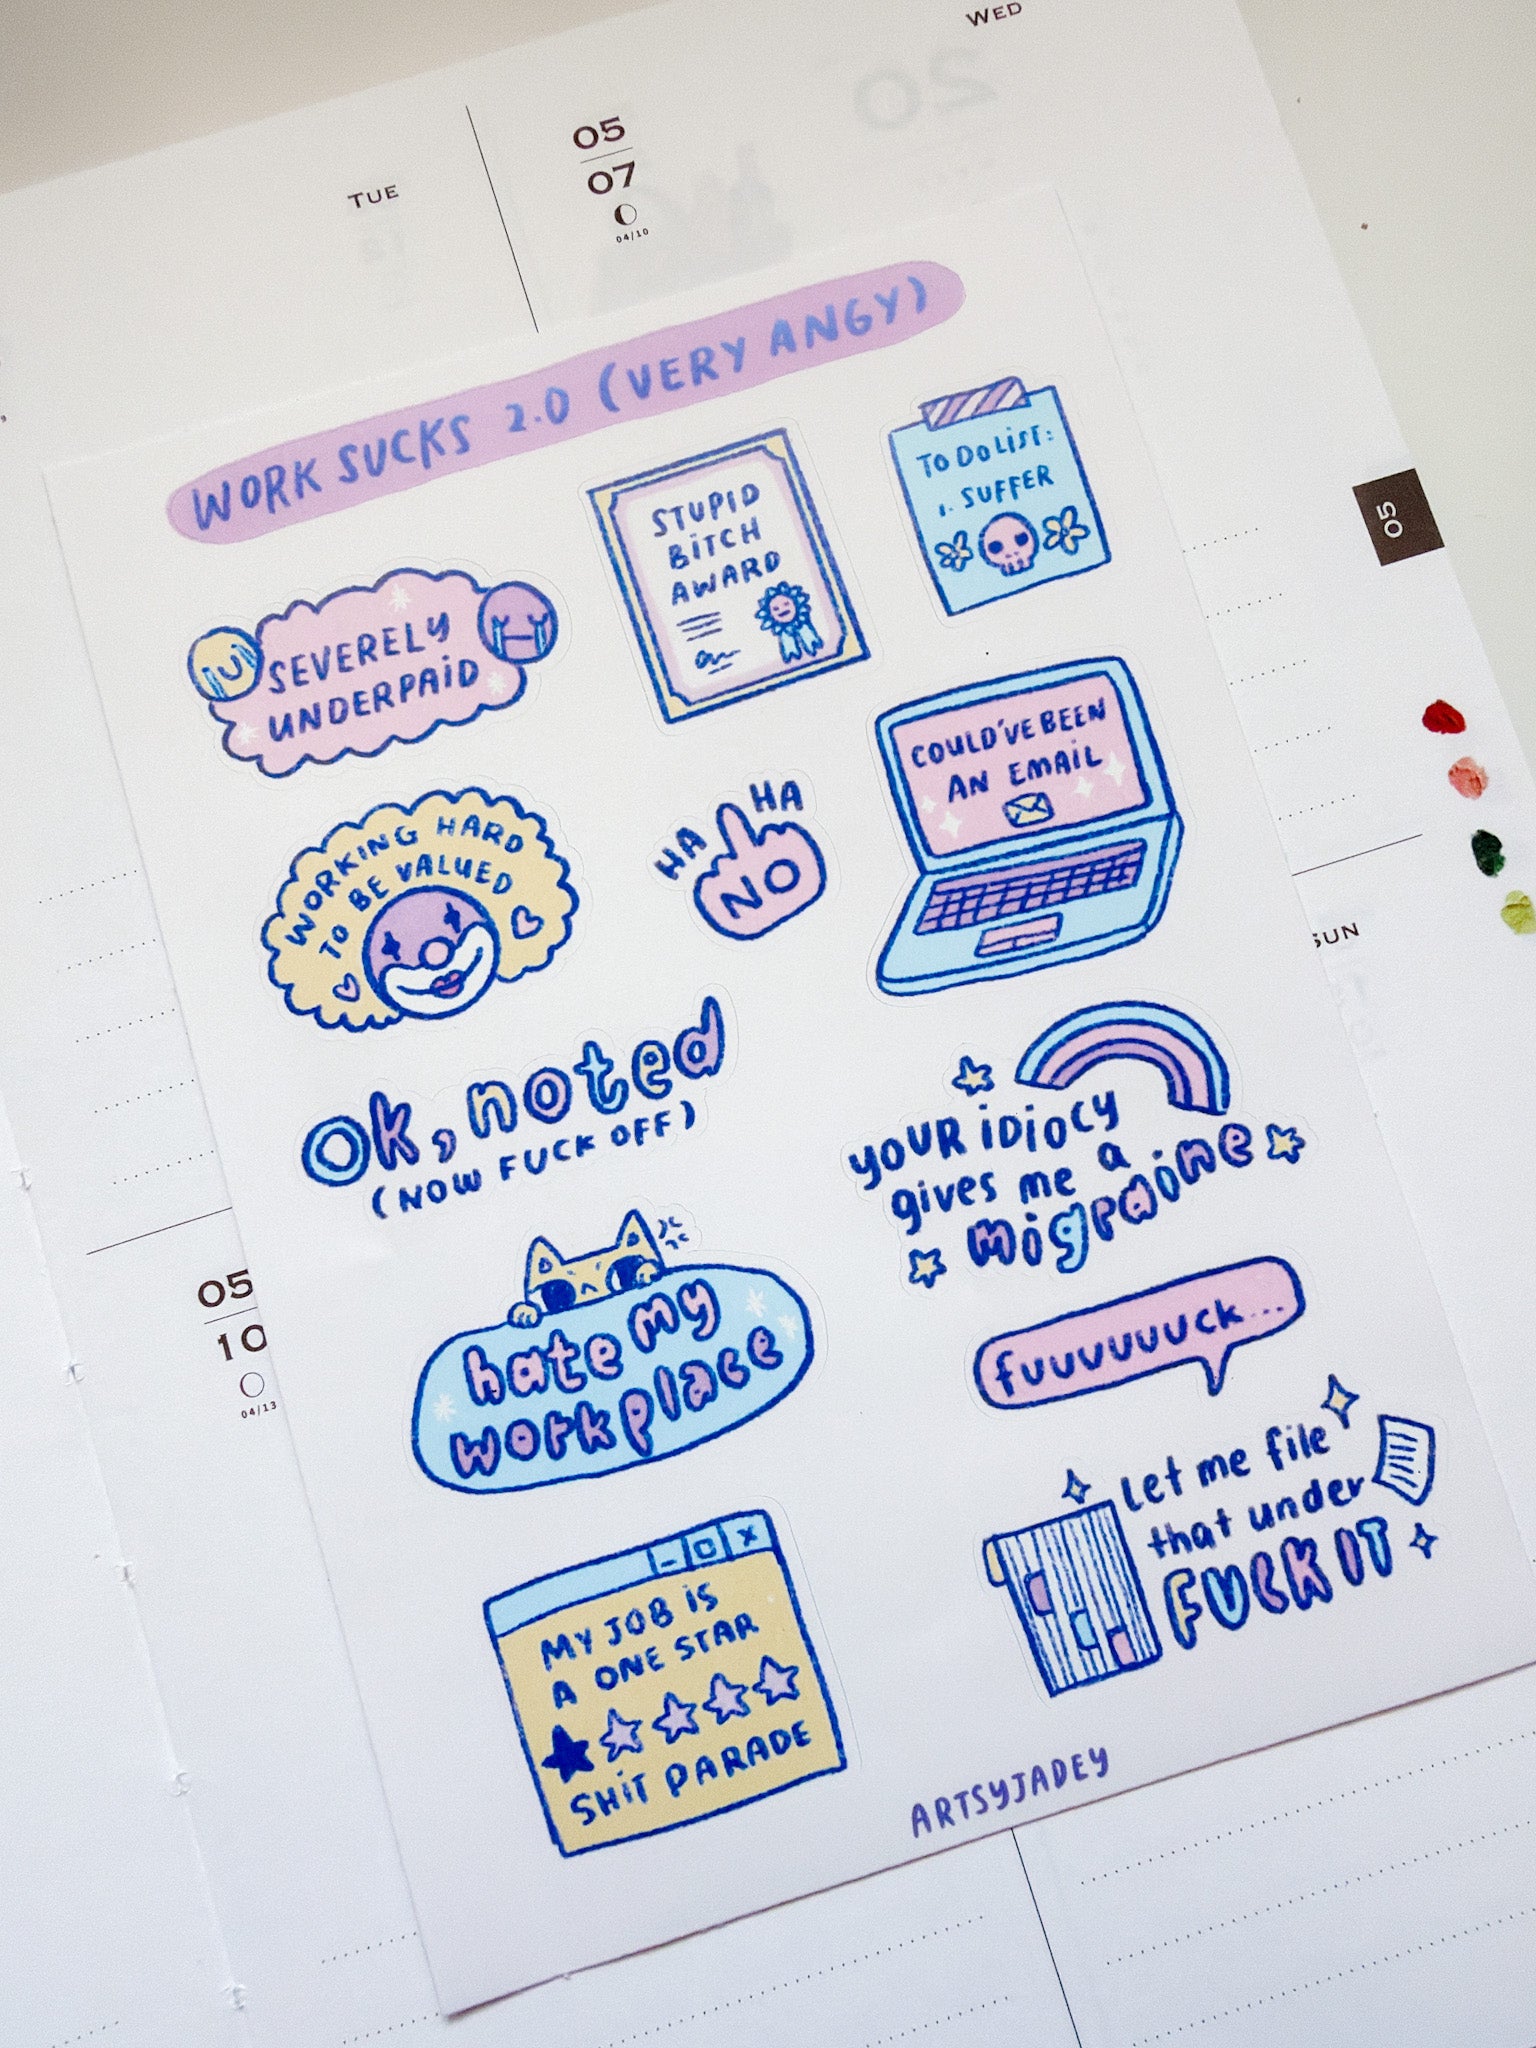 WED
TUE
05
07
04/10
WORK SUCKS 2.0 (VERY ANGY)
STUPID
BITCH
AWARD
TO DO LIST:
1. SUFFER
05
SEVERELY
UNDERPAID
COULD'VE BEEN
AN EMAIL
WORKING HARD
TO BE VALUED
HA HA
NO
SUN
OK, noted
(NOW FUCK OFF)
YOUR IDIOCY
gives me a
migraine
hate my
workplace
fuuuuuuuck...
05
10
04/13
Let me file
that under
FUCK IT
MY JOB IS
A ONE STAR
SHIT PARADE
ARTSYJADEY